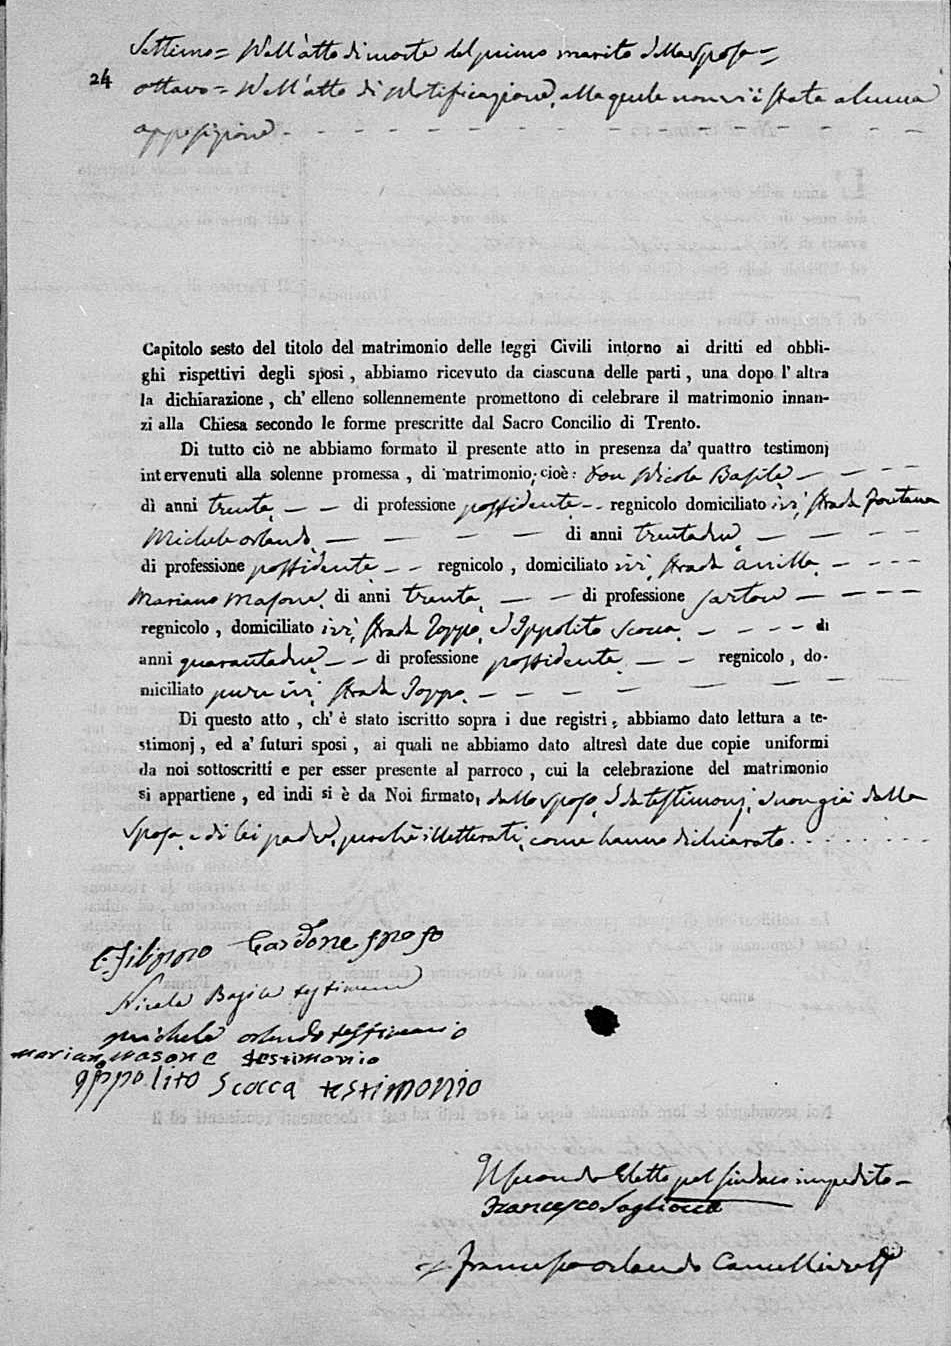 Settimo = Dell'atto di morte del primo marito della sposa =
24
ottavo = Dell'atto di Notificazione, alla quale non vi è stata alcuna
opposizione.
Capitolo sesto del titolo del matrimonio delle leggi Civili intorno ai dritti ed obbli-
ghi rispettivi degli sposi, abbiamo ricevuto da ciascuna delle parti, una dopo l'altra
la dichiarazione, ch'elleno sollennemente promettono di celebrare il matrimonio innan-
zi alla Chiesa secondo le forme prescritte dal Sacro Concilio di Trento.
Di tutto ciò ne abbiamo formato il presente atto in presenza da' quattro testimonj
intervenuti alla solenne promessa, di matrimonio; cioè: Don Nicola Basile
di anni trenta di professione possidente regnicolo domiciliato ivi, strada Fontana
Michele Orlando di anni trentadue
di professione possidente regnicolo, domiciliato ivi, strada
Mariano Masone di anni trenta di professione sartore
regnicolo, domiciliato ivi, strada Toppo, ed Ippolito Scocca di
anni quarantadue di professione possidente regnicolo, do-
miciliato pure ivi strada Toppo.
Di questo atto, ch'è stato iscritto sopra i due registri, abbiamo dato lettura a te-
stimonj, ed a' futuri sposi, ai quali ne abbiamo dato altresì date due copie uniformi
da noi sottoscritti e per esser presente al parroco, cui la celebrazione del matrimonio
si appartiene, ed indi si è da Noi firmato, dallo sposo, e da testimonj, e non già dalla
sposa, e di lei padre, perchè illetterati, come hanno dichiarato.
Filippo Cardone sposo
Nicola Basile testimone
Michele Orlando testimonio
Mariano Masone testimonio
Ippolito Scocca testimonio
Il secondo Eletto pel sindaco impedito
Francesco Sagliocca
Francesco Orlando Cancelliere